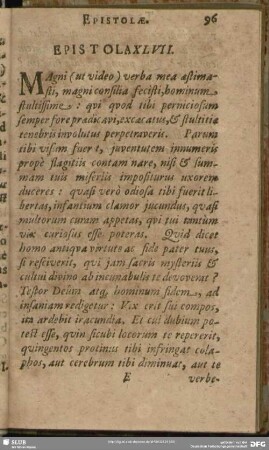 EPISTOLÆ. 96
EPISTOLA XLVII.
MAgni (ut video) verba mea æstima-
sti, magni consilia fecisti, hominum
stultissime: qui quod tibi perniciosum
semper fore prædicavi, excæcatus, & stultitiæ
tenebris involutus perpetraveris. Parum
tibi visum fuerit, juventutem innumeris
prope flagitiis contaminare, nisi & sum-
mam tuis miseriis impositurus uxorem
duceres: quasi verò odiosa tibi fuerit li-
bertas, infantium clamor jucundus, quasi
multorum curam appetas, qui tui tantum
vix curiosus esse poteras. Quid dicet
homo antiqua virtute ac fide pater tuus,
si resciverit, qui jam sacris mysteriis &
cultui divino ab incunabulis te devoverat?
Testor Deûm atq; hominum fidem, ad
insaniam redigetur: Vix erit sui compos,
ita ardebit iracundia. Et cui dubium po-
test esse, quin sicubi locorum te repererit,
quingentos protinus tibi infringat cola-
phos, aut cerebrum tibi diminuat, aut te
E verbe-
SLUB
DFG